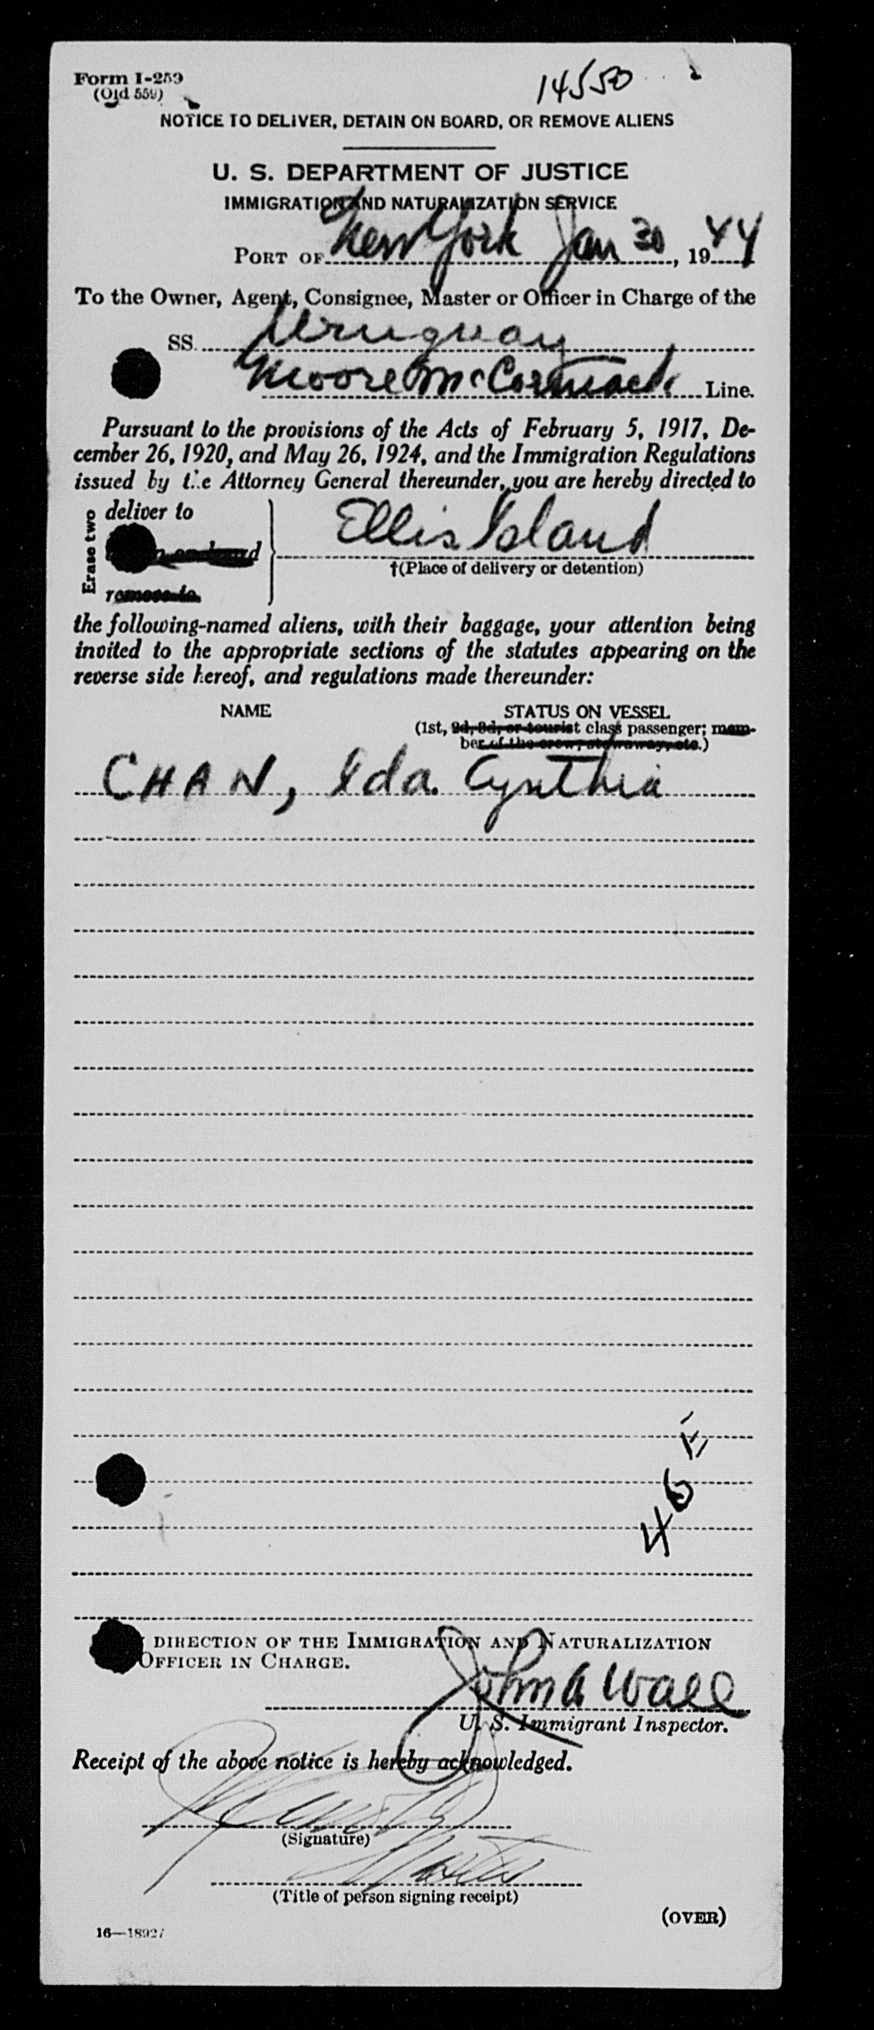 Form I-259
(Old 559)
14550
NOTICE TO DELIVER, DETAIN ON BOARD, OR REMOVE ALIENS
U. S. DEPARTMENT OF JUSTICE
IMMIGRATION AND NATURALIZATION SERVICE
PORT OF New York Jan 30, 1944
To the Owner, Agent, Consignee, Master or Officer in Charge of the
SS. Uruguay
Moore McCormack Line.
Pursuant to the provisions of the Acts of February 5, 1917, De-
cember 26, 1920, and May 26, 1924, and the Immigration Regulations
issued by the Attorney General thereunder, you are hereby directed to
Erase two
deliver to
on board
remove to
Ellis Island
†(Place of delivery or detention)
the following-named aliens, with their baggage, your attention being
invited to the appropriate sections of the statutes appearing on the
reverse side hereof, and regulations made thereunder:
NAME STATUS ON VESSEL
(1st, 2d, 3d, or tourist class passenger; mem-
ber of the crew, stowaway, etc.)
CHAN, Ida Cynthia
46 E
DIRECTION OF THE IMMIGRATION AND NATURALIZATION
OFFICER IN CHARGE.
John A Wall
U. S. Immigrant Inspector.
Receipt of the above notice is hereby acknowledged.
(Signature)
Master
(Title of person signing receipt)
(OVER)
16—18927